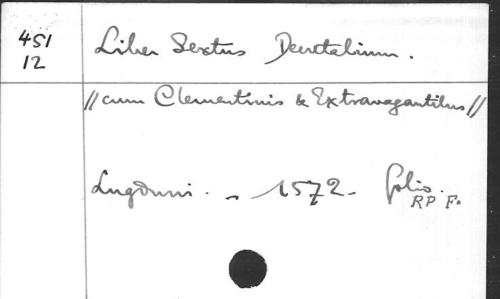 451
12
Liber Sextus Decretalium.
//cum Clementinis & Extravagantibus//
Lugduni. - 1572 - folio.
RP F.